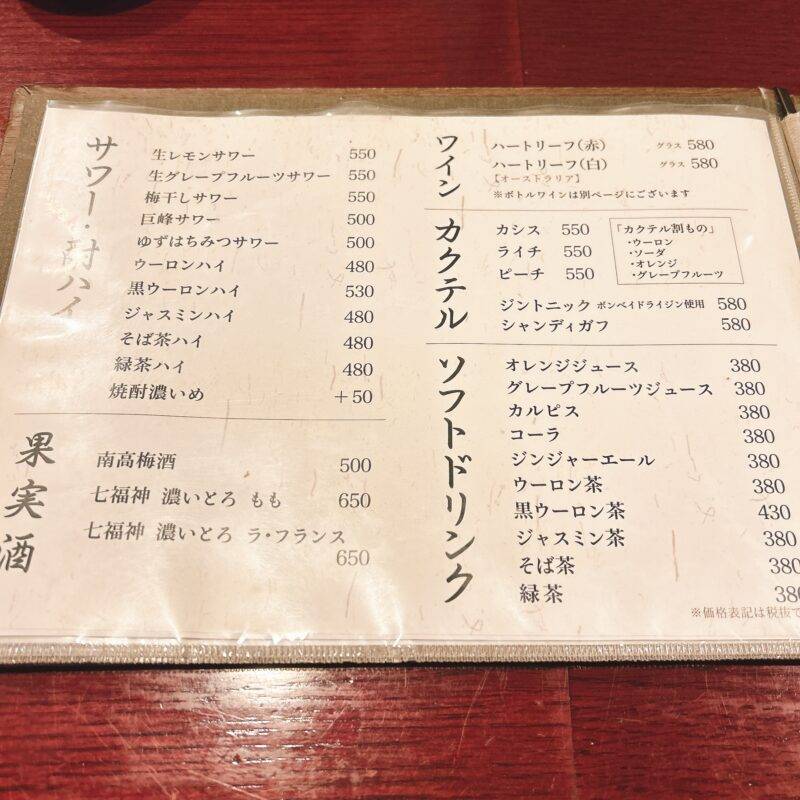 サワー・酎ハイ
生レモンサワー 550
生グレープフルーツサワー 550
梅干しサワー 550
巨峰サワー 500
ゆずはちみつサワー 500
ウーロンハイ 480
黒ウーロンハイ 530
ジャスミンハイ 480
そば茶ハイ 480
緑茶ハイ 480
焼酎濃いめ +50
果実酒
南高梅酒 500
七福神 濃いとろ もも 650
七福神 濃いとろ ラ・フランス
650
ワイン
ハートリーフ(赤) グラス 580
ハートリーフ(白) グラス 580
【オーストラリア】
※ボトルワインは別ページにございます
カクテル
カシス 550
ライチ 550
ピーチ 550
「カクテル割もの」
・ウーロン
・ソーダ
・オレンジ
・グレープフルーツ
ジントニック ボンベイドライジン使用 580
シャンディガフ 580
ソフトドリンク
オレンジジュース 380
グレープフルーツジュース 380
カルピス 380
コーラ 380
ジンジャーエール 380
ウーロン茶 380
黒ウーロン茶 430
ジャスミン茶 380
そば茶 380
緑茶 380
※価格表記は税抜で